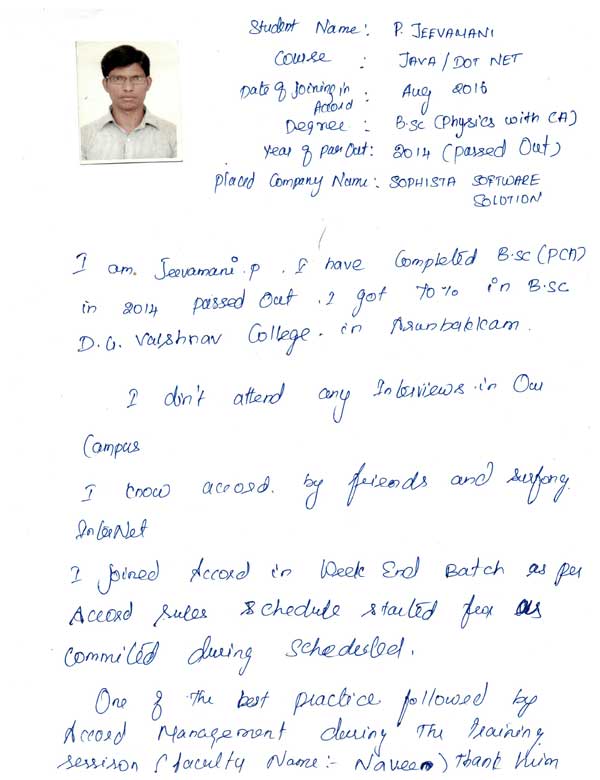 Student Name: P. JEEVAMANI
Course : JAVA / DOT NET
Date of Joining in Accord : Aug 2016
Degree : B.sc (Physics with CA)
Year of Pass Out: 2014 (Passed Out)
Placed Company Name: SOPHISTA SOFTWARE
SOLUTION
I am. Jeevamani.p . I have Completed B.sc (PCA)
in 2014 passed Out. I got 70% in B.sc
D.G. Vaishnav College. in Arunbakkam.
I din't attend any Interviews in Our
Campus
I know accord. by friends and surfing
InterNet
I joined Accord in Week End Batch as per
Accord rules schedule started as
commited during scheduled.
One of the best practice followed by
Accord Management during The Training
session (faculty Name:- Naveen) Thank him